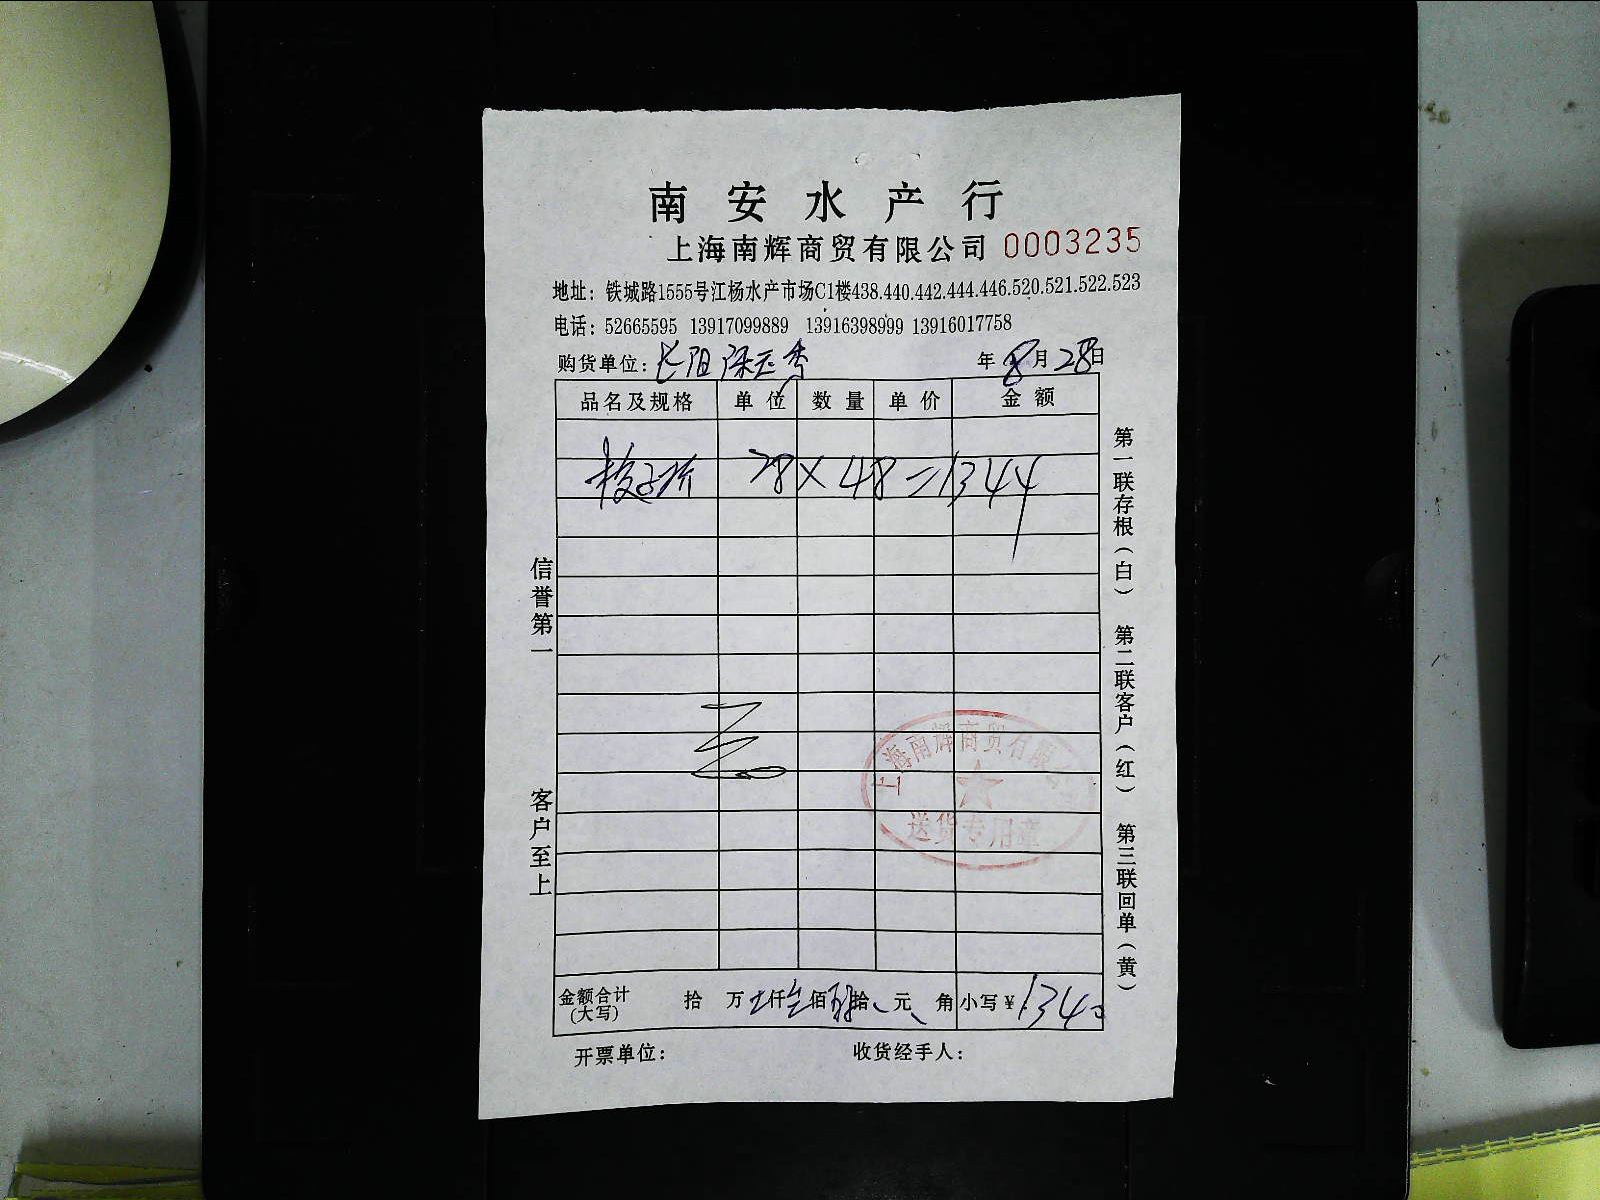 南安水产行
上海南辉商贸有限公司 0003235
地址：铁城路1555号江杨水产市场C1楼438.440.442.444.446.520.521.522.523
电话：52665595 13917099889 13916398999 13916017758
购货单位： 年 8 月 28 日
品名及规格 单位 数量 单价 金额
28 × 48 = 1344
信誉第一
客户至上
第一联存根（白） 第二联客户（红） 第三联回单（黄）
上海南辉商贸有限公司
送货专用章
金额合计（大写） 拾 万 仟 佰 拾 元 角 小写¥ 1340
开票单位： 收货经手人：